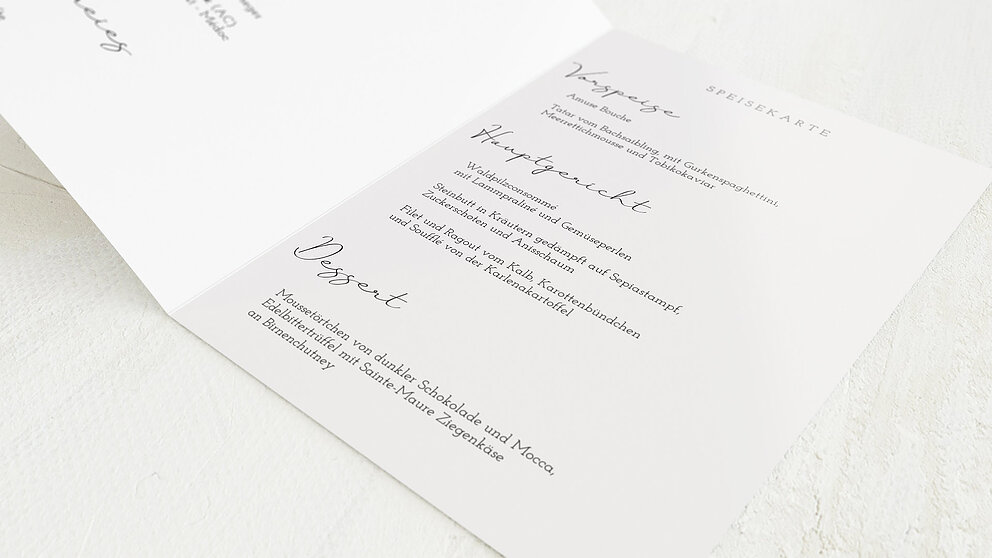 (AC)
- Médoc
SPEISEKARTE
Vorspeise
Amuse Bouche
Tatar vom Bachsaibling, mit Gurkenspaghettini,
Meerrettichmousse und Tobikokaviar
Hauptgericht
Waldpilzconsommé
mit Lammpraliné und Gemüseperlen
Steinbutt in Kräutern gedämpft auf Sepiastampf,
Zuckerschoten und Anisschaum
Filet und Ragout vom Kalb, Karottenbündchen
und Soufflé von der Karlenakartoffel
Dessert
Moussetörtchen von dunkler Schokolade und Mocca,
Edelbittertrüffel mit Sainte-Maure Ziegenkäse
an Birnenchutney